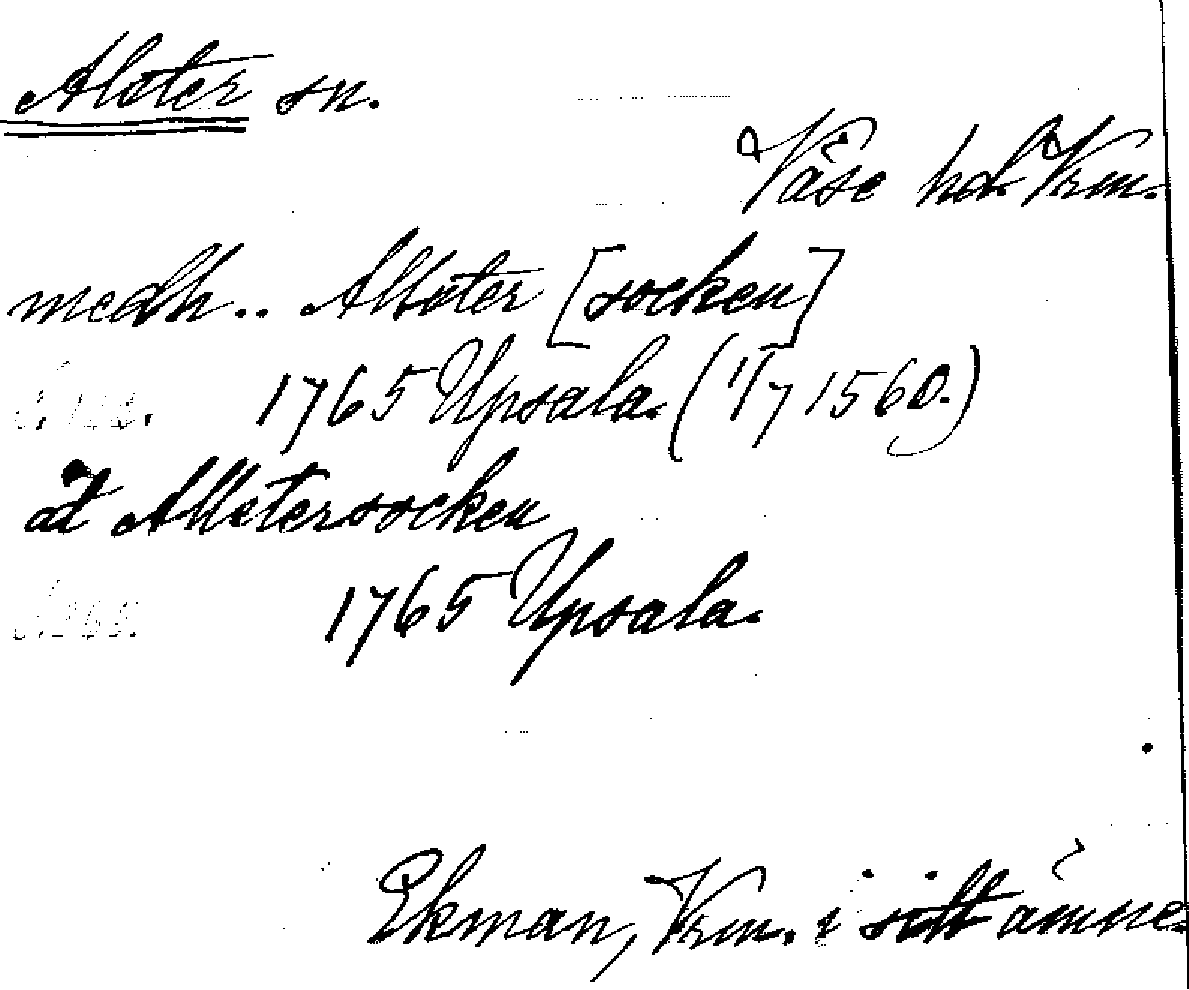 Alster sn.
Väse hd. Vrm.
medh.. Allster [socken]
1765 Upsala. (1/7 1560.)
åt Allstersocken
1765 Upsala.
Ekman, Vrm. i sitt ämne.